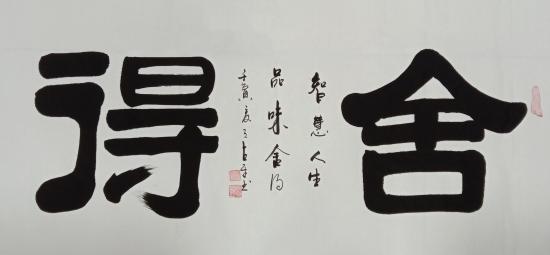 舍得
智慧人生
品味舍得
壬寅夏